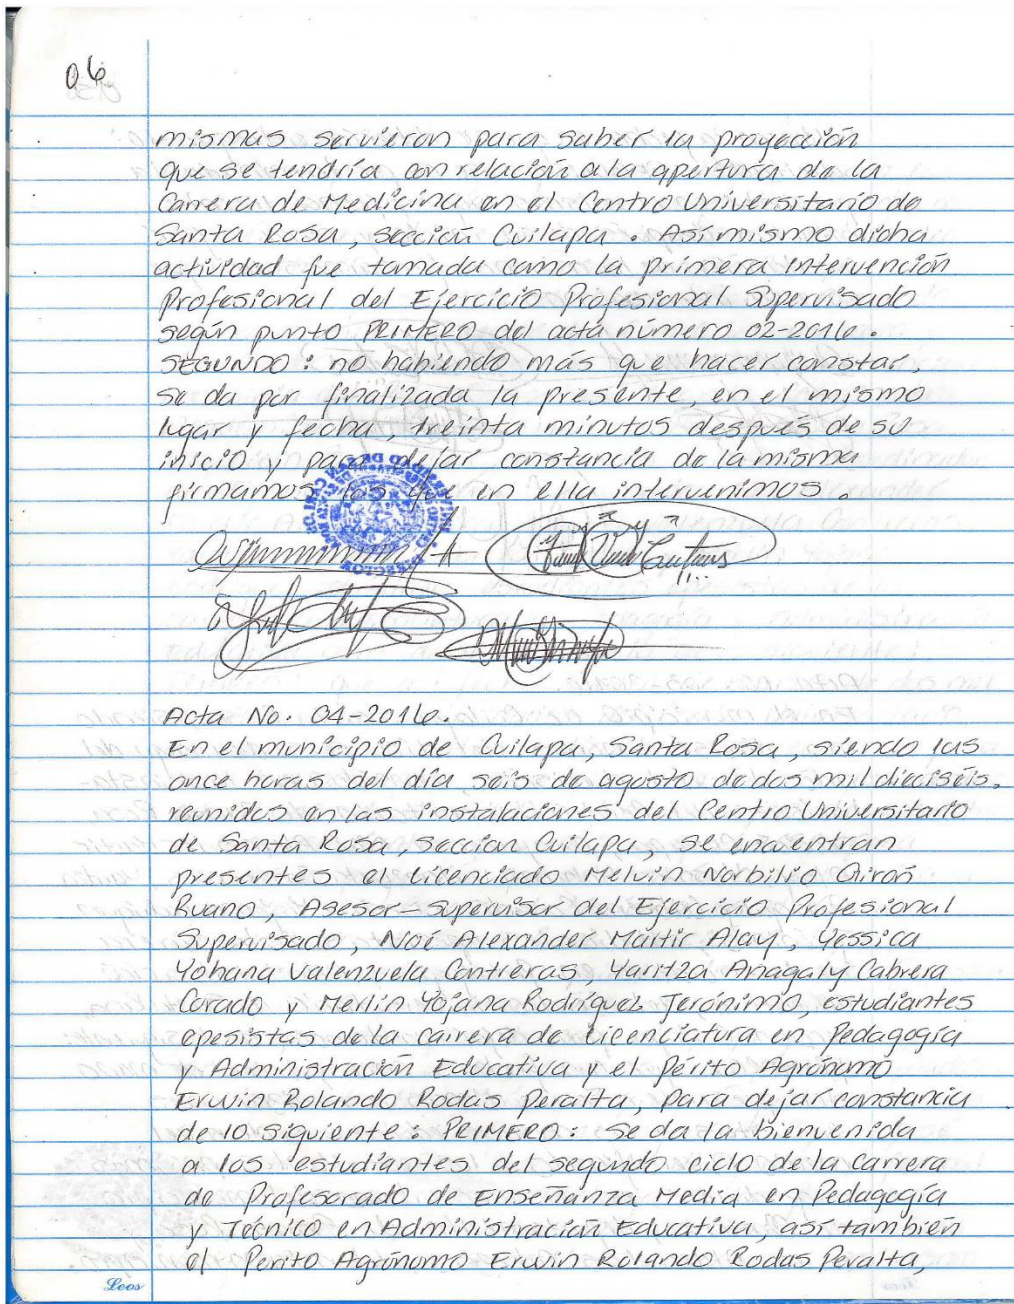 06
mismas servieron para saber la proyección
que se tendría con relación a la apertura de la
Carrera de Medicina en el Centro Universitario de
Santa Rosa, sección Cuilapa. Así mismo dicha
actividad fue tomada como la primera intervención
Profesional del Ejercicio Profesional Supervisado
según punto PRIMERO del acta número 02-2016.
SEGUNDO: no habiendo más que hacer constar,
se da por finalizada la presente, en el mismo
lugar y fecha, treinta minutos después de su
inicio y para dejar constancia de la misma
firmamos los que en ella intervenimos.
Acta No. 04-2016.
En el municipio de Cuilapa, Santa Rosa, siendo las
once horas del día seis de agosto de dos mil dieciséis,
reunidos en las instalaciones del Centro Universitario
de Santa Rosa, sección Cuilapa, se encuentran
presentes el Licenciado Melvin Norbilio Girón
Ruano, Asesor-Supervisor del Ejercicio Profesional
Supervisado, Noé Alexander Martir Alay, Yessica
Yohana Valenzuela Contreras, Yaritza Anagaly Cabrera
Corado y Merlin Yojana Rodríguez Jerónimo, estudiantes
epesistas de la carrera de Licenciatura en Pedagogía
y Administración Educativa y el Périto Agrónomo
Erwin Rolando Rodas Peralta, para dejar constancia
de lo siguiente: PRIMERO: Se da la bienvenida
a los estudiantes del segundo ciclo de la carrera
de Profesorado de Enseñanza Media en Pedagogía
y Técnico en Administración Educativa, así también
el Perito Agrónomo Erwin Rolando Rodas Peralta,
Leos